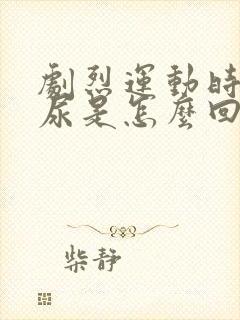 劇烈運動時
尿是怎麼回
柴靜